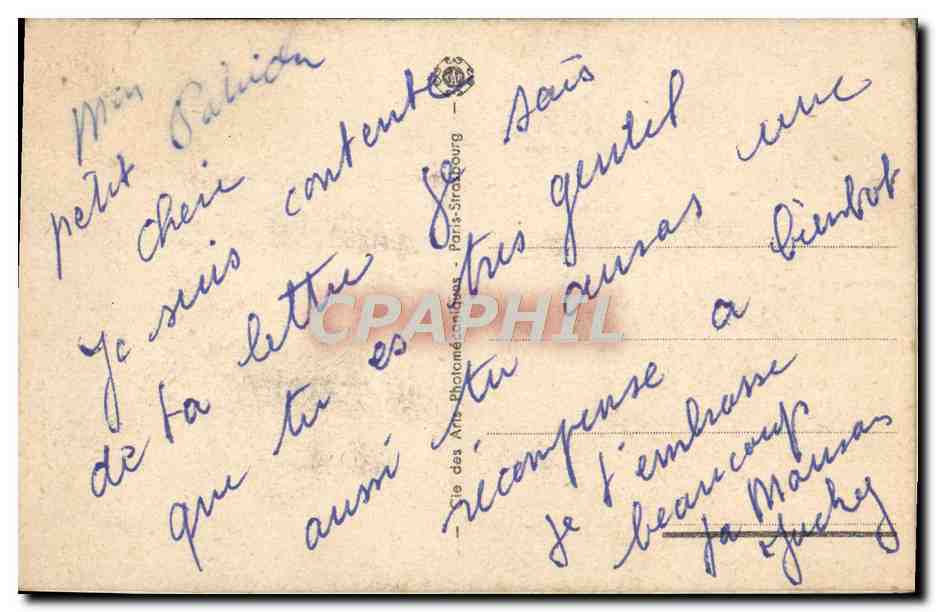 Mon
petit
cheri
Je suis contente
de ta lettre Je sais
que tu es tres gentil
aussi tu auras une
récompense a bientot
Je t'embrasse
beaucoup
Ta Maman
Cie des Arts Photomécaniques - Paris-Strasbourg
CPAPHIL